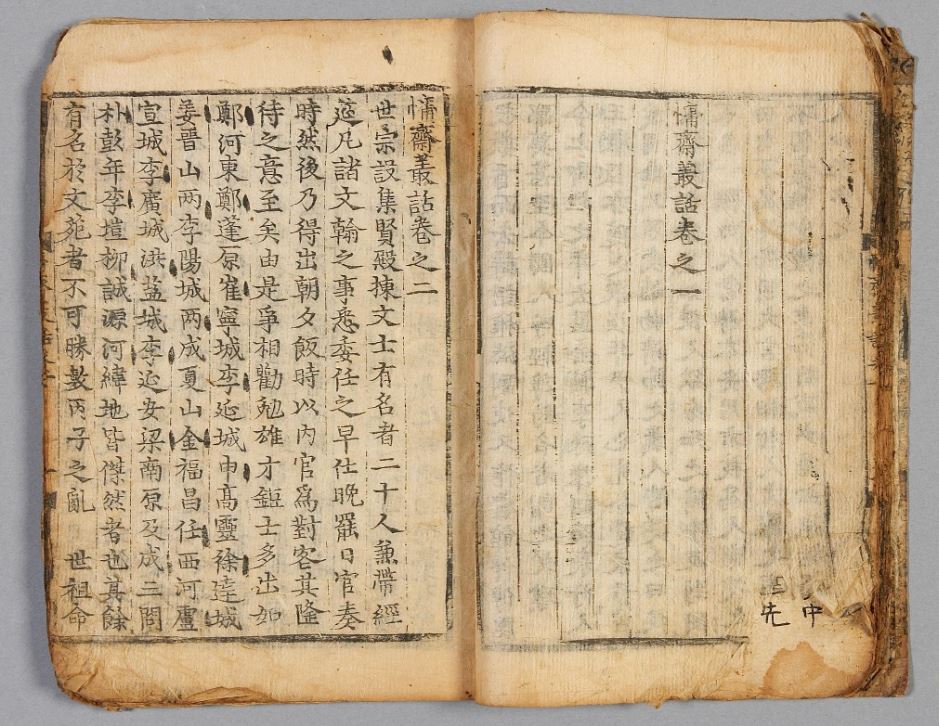 慵齋叢話卷之一
中
先
慵齋叢話卷之二
世宗設集賢殿揀文士有名者二十人兼帶經
筵凡諸文翰之事悉委任之早仕晚罷日官奏
時然後乃得出朝夕飯時以內官爲對客其隆
待之意至矣由是爭相勸勉雄才鉅士多出如
鄭河東鄭蓬原崔寧城李延城申高靈徐達城
姜晉山两李陽城两成夏山金福昌任西河盧
宣城李廣城洪益城李延安梁南原及成三問
朴彭年李塏柳誠源河緯地皆傑然者也其餘
有名於文苑者不可勝數丙子之亂 世祖命